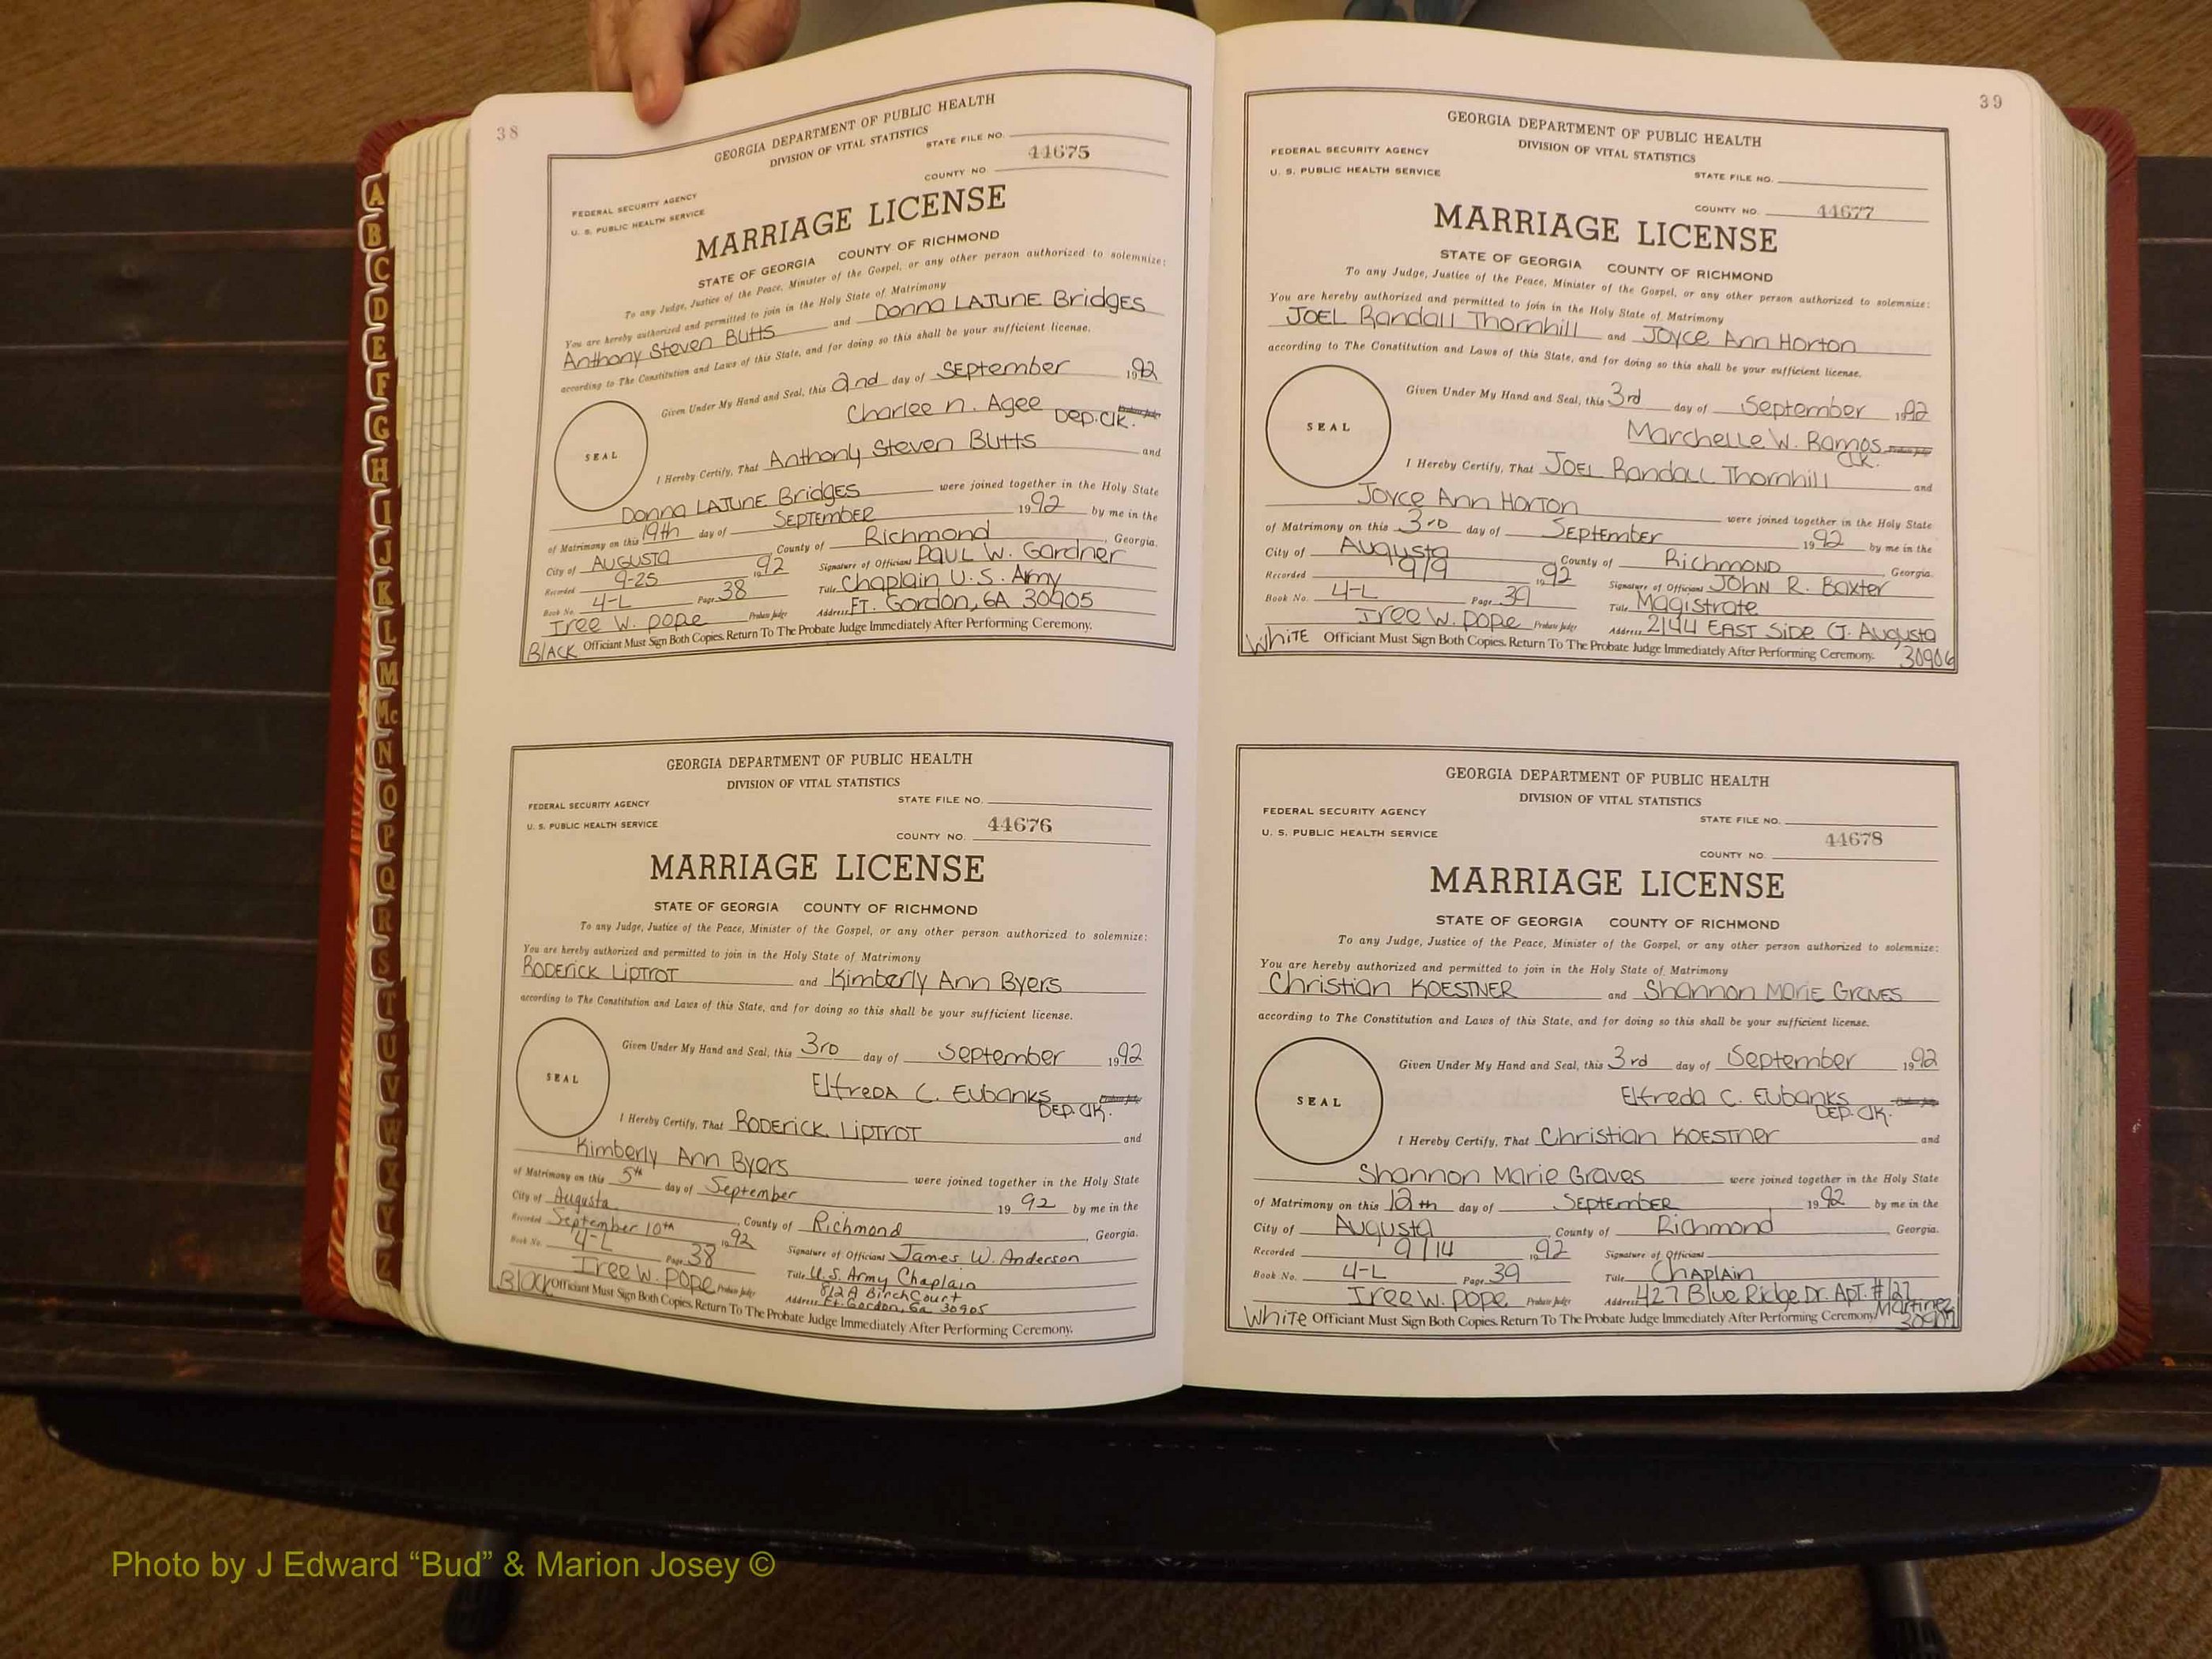 38
GEORGIA DEPARTMENT OF PUBLIC HEALTH
DIVISION OF VITAL STATISTICS
STATE FILE NO.
44675
COUNTY NO
FEDERAL SECURITY AGENCY
U. S. PUBLIC HEALTH SERVICE
MARRIAGE LICENSE
STATE OF GEORGIA COUNTY OF RICHMOND
To any Judge, Justice of the Peace, Minister of the Gospel, or any other person authorized to solemnize:
You are hereby authorized and permitted to join in the Holy State of Matrimony
Anthony Steven Butts and Donna LAJUNE Bridges
according to The Constitution and Laws of this State, and for doing so this shall be your sufficient license.
Given Under My Hand and Seal, this 2nd day of September 1992
Charlee n. Agee Dep. Clk. Probate Judge
SEAL
I Hereby Certify, That Anthony Steven Butts and
Donna LAJUNE Bridges were joined together in the Holy State
of Matrimony on this 19th day of SEPTEMBER 1992 by me in the
City of AUGUSTA County of Richmond, Georgia.
Recorded 9-25 1992 Signature of Officiant PAUL W. Gardner
Book No. 4-L Page 38 Title Chaplain U.S. Army
Iree W. Pope Probate Judge Address FT. Gordon, GA 30905
BLACK Officiant Must Sign Both Copies. Return To The Probate Judge Immediately After Performing Ceremony.
GEORGIA DEPARTMENT OF PUBLIC HEALTH
DIVISION OF VITAL STATISTICS
FEDERAL SECURITY AGENCY STATE FILE NO.
U. S. PUBLIC HEALTH SERVICE COUNTY NO. 44676
MARRIAGE LICENSE
STATE OF GEORGIA COUNTY OF RICHMOND
To any Judge, Justice of the Peace, Minister of the Gospel, or any other person authorized to solemnize:
You are hereby authorized and permitted to join in the Holy State of Matrimony
RODERICK LIPTROT and Kimberly Ann Byers
according to The Constitution and Laws of this State, and for doing so this shall be your sufficient license.
Given Under My Hand and Seal, this 3rd day of September 1992
Elfreda C. Eubanks Dep. Clk. Probate Judge
SEAL
I Hereby Certify, That RODERICK LIPTROT and
Kimberly Ann Byers were joined together in the Holy State
of Matrimony on this 5th day of September 1992 by me in the
City of Augusta, County of Richmond, Georgia.
Recorded September 10th 1992 Signature of Officiant James W. Anderson
Book No. 4-L Page 38 Title U.S. Army Chaplain
812A Birch Court
Iree W. Pope Probate Judge Address Ft. Gordon, Ga 30905
Black Officiant Must Sign Both Copies. Return To The Probate Judge Immediately After Performing Ceremony.
39
GEORGIA DEPARTMENT OF PUBLIC HEALTH
DIVISION OF VITAL STATISTICS
FEDERAL SECURITY AGENCY
U. S. PUBLIC HEALTH SERVICE
STATE FILE NO.
COUNTY NO. 44677
MARRIAGE LICENSE
STATE OF GEORGIA COUNTY OF RICHMOND
To any Judge, Justice of the Peace, Minister of the Gospel, or any other person authorized to solemnize:
You are hereby authorized and permitted to join in the Holy State of Matrimony
JOEL Randall Thornhill and Joyce Ann Horton
according to The Constitution and Laws of this State, and for doing so this shall be your sufficient license.
Given Under My Hand and Seal, this 3rd day of September 1992
Marchelle W. Ramos Clk. Probate Judge
SEAL
I Hereby Certify, That JOEL Randall Thornhill and
Joyce Ann Horton were joined together in the Holy State
of Matrimony on this 3rd day of September 1992 by me in the
City of Augusta County of Richmond, Georgia.
Recorded 9/9 1992 Signature of Officiant JOHN R. Baxter
Book No. 4-L Page 39 Title Magistrate
Iree W. Pope Probate Judge Address 2144 EAST Side Ct. Augusta
WHITE Officiant Must Sign Both Copies. Return To The Probate Judge Immediately After Performing Ceremony. 30906
GEORGIA DEPARTMENT OF PUBLIC HEALTH
DIVISION OF VITAL STATISTICS
FEDERAL SECURITY AGENCY STATE FILE NO.
U. S. PUBLIC HEALTH SERVICE 44678
COUNTY NO.
MARRIAGE LICENSE
STATE OF GEORGIA COUNTY OF RICHMOND
To any Judge, Justice of the Peace, Minister of the Gospel, or any other person authorized to solemnize:
You are hereby authorized and permitted to join in the Holy State of Matrimony
Christian KOESTNER and Shannon MARIE GRAVES
according to The Constitution and Laws of this State, and for doing so this shall be your sufficient license.
Given Under My Hand and Seal, this 3rd day of September 1992
Elfreda C. Eubanks Dep. Clk.
SEAL
I Hereby Certify, That Christian KOESTNER and
Shannon Marie Graves were joined together in the Holy State
of Matrimony on this 12th day of SEPTEMBER 1992 by me in the
City of Augusta, County of Richmond, Georgia.
Recorded 9/14 1992 Signature of Officiant
Book No. 4-L Page 39 Title Chaplain
Iree W. Pope Probate Judge Address 427 Blue Ridge Dr. Apt. #127
WHITE Officiant Must Sign Both Copies. Return To The Probate Judge Immediately After Performing Ceremony. Martinez
30907
A
B
C
D
E
F
G
H
I
J
K
L
M
Mc
N
O
P
Q
R
S
T
U
V
W
X
Y
Z
Photo by J Edward “Bud” & Marion Josey ©